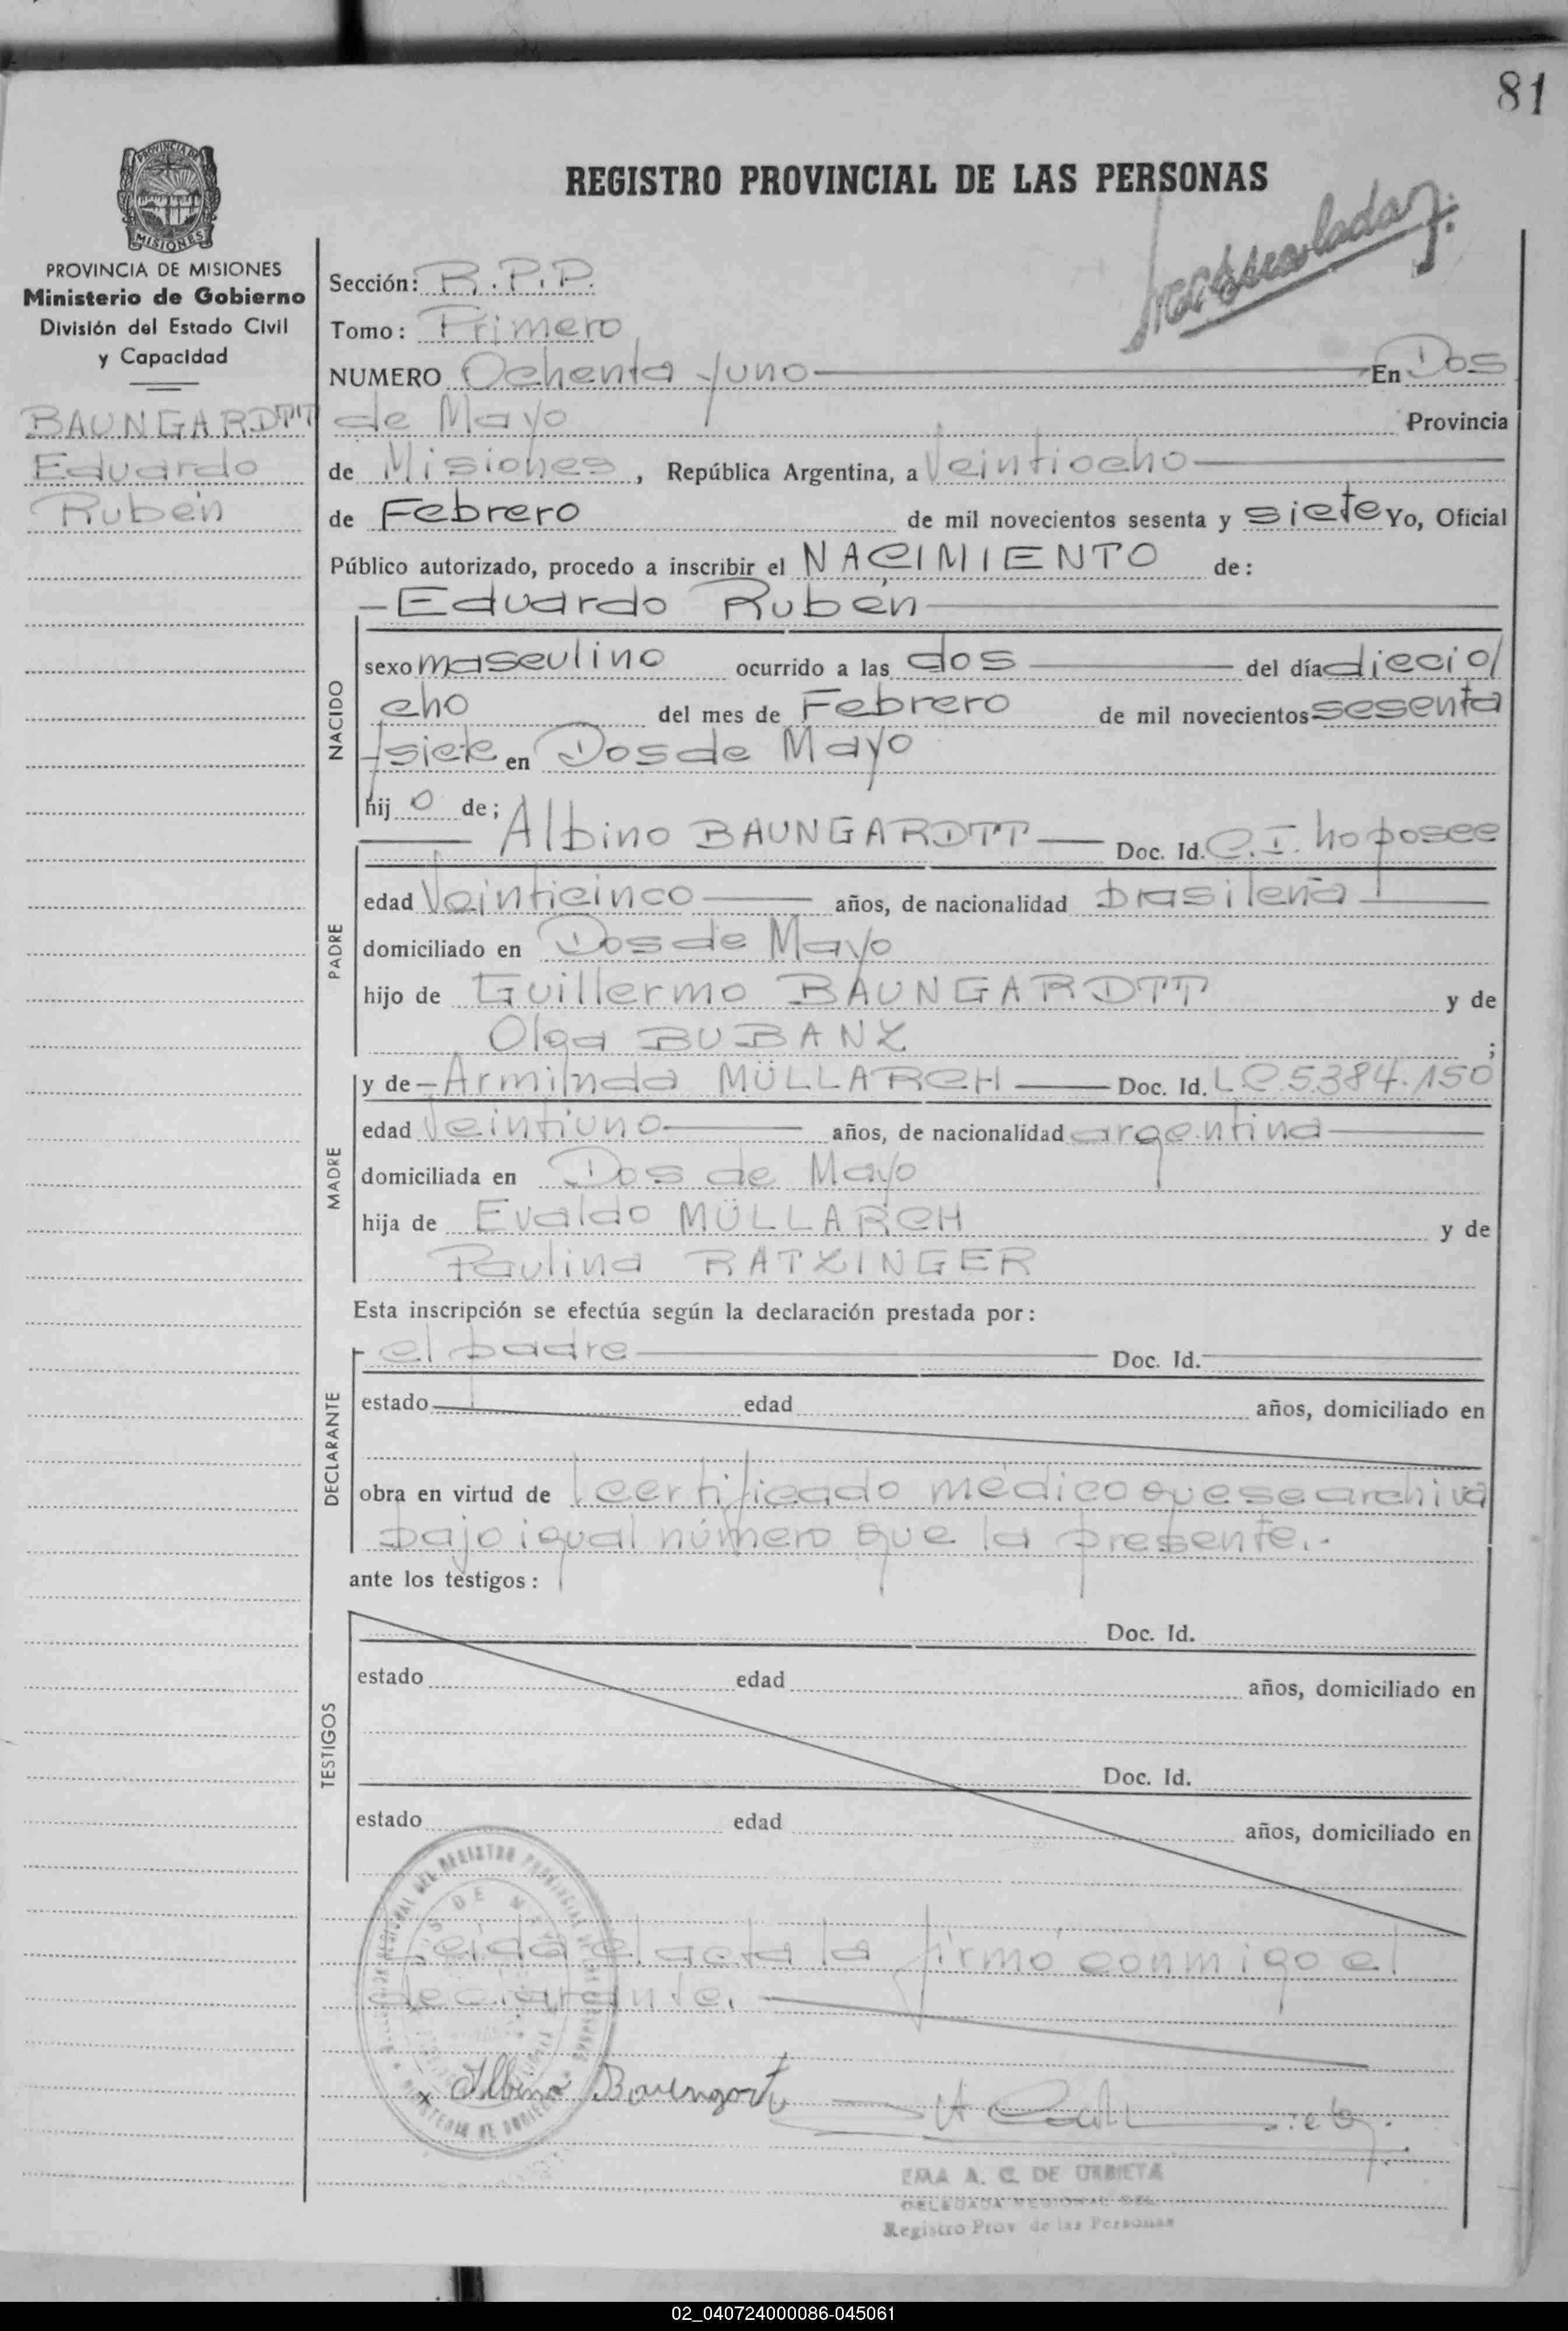 81
REGISTRO PROVINCIAL DE LAS PERSONAS
PROVINCIA DE
MISIONES
PROVINCIA DE MISIONES
Ministerio de Gobierno
División del Estado Civil
y Capacidad
BAUNGARDTT
Eduardo
Rubén
Sección: R.P.P.
Tomo: Primero
NUMERO Ochenta y uno En Dos
de Mayo Provincia
de Misiones, República Argentina, a Veintiocho
de Febrero de mil novecientos sesenta y siete Yo, Oficial
Público autorizado, procedo a inscribir el NACIMIENTO de:
Eduardo Rubén
NACIDO
sexo masculino ocurrido a las dos del día diecio/
cho del mes de Febrero de mil novecientos sesenta
y siete en Dos de Mayo
hijo de;
PADRE
Albino BAUNGARDTT Doc. Id. C.I. no posee
edad Veinticinco años, de nacionalidad brasileña
domiciliado en Dos de Mayo
hijo de Guillermo BAUNGARDTT y de
Olga BUBANZ ;
MADRE
y de Armilnda MÜLLARCH Doc. Id. LC 5384.150
edad Veintiuno años, de nacionalidad argentina
domiciliada en Dos de Mayo
hija de Evaldo MÜLLARCH y de
Paulina RATZINGER
Esta inscripción se efectúa según la declaración prestada por:
DECLARANTE
el padre Doc. Id.
estado edad años, domiciliado en
obra en virtud de l certificado médico que se archiva
bajo igual número que la presente.-
ante los testigos:
TESTIGOS
Doc. Id.
estado edad años, domiciliado en
Doc. Id.
estado edad años, domiciliado en
Leida el acta la firmó conmigo el
declarante.
x Albino Baungart
EMA A. C. DE URBIETA
DELEGADA REGIONAL DEL
Registro Prov de las Personas
02_040724000086-045061